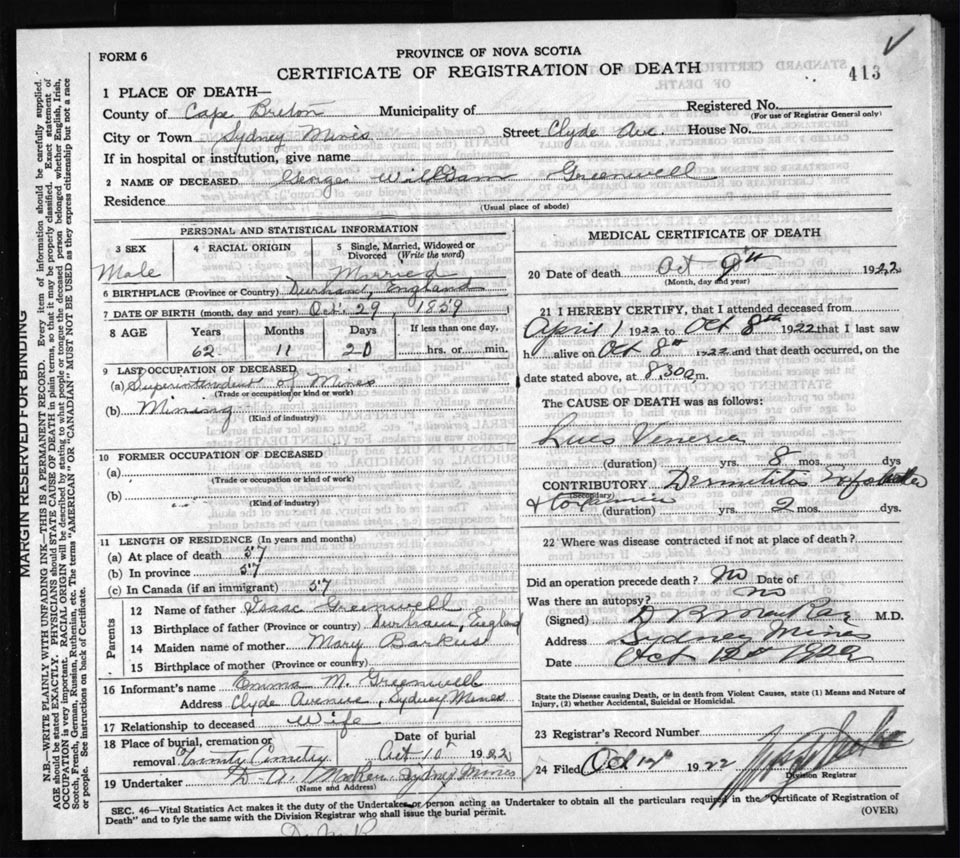 FORM 6
PROVINCE OF NOVA SCOTIA
CERTIFICATE OF REGISTRATION OF DEATH
413
1 PLACE OF DEATH—
County of Cape Breton Municipality of Registered No.
(For use of Registrar General only)
City or Town Sydney Mines Street Clyde Ave. House No.
If in hospital or institution, give name
2 NAME OF DECEASED George William Greenwell
Residence
(Usual place of abode)
PERSONAL AND STATISTICAL INFORMATION
3 SEX 4 RACIAL ORIGIN 5 Single, Married, Widowed or Divorced (Write the word)
Male Married
6 BIRTHPLACE (Province or Country) Durham, England
7 DATE OF BIRTH (month, day and year) Oct. 29, 1859
8 AGE Years Months Days If less than one day,
62 11 20 hrs. or min.
9 LAST OCCUPATION OF DECEASED
(a) Superintendent of Mines
(Trade or occupation or kind or work)
(b) Mining
(Kind of industry)
10 FORMER OCCUPATION OF DECEASED
(a)
(Trade or occupation or kind of work)
(b)
(Kind of industry)
11 LENGTH OF RESIDENCE (In years and months)
(a) At place of death 57
(b) In province 57
(c) In Canada (if an immigrant) 57
Parents
12 Name of father Isaac Greenwell
13 Birthplace of father (Province or country) Durham, England
14 Maiden name of mother Mary Barkus
15 Birthplace of mother (Province or country)
16 Informant's name Emma M. Greenwell
Address Clyde Avenue, Sydney Mines
17 Relationship to deceased Wife
18 Place of burial, cremation or removal Trinity Date of burial Oct 10 1922
19 Undertaker Sydney Mines
(Name and Address)
MEDICAL CERTIFICATE OF DEATH
20 Date of death Oct 9th 1922
(Month, day and year)
21 I HEREBY CERTIFY, that I attended deceased from
April 1 1922 to Oct 8th 1922 that I last saw
h alive on Oct 8th 1922 and that death occurred, on the
date stated above, at 8.30 a m.
The CAUSE OF DEATH was as follows:
Lues Venerea
(duration) yrs. 8 mos. dys
CONTRIBUTORY Dermatitis
(Secondary)
(duration) yrs. 2 mos. dys.
22 Where was disease contracted if not at place of death?
Did an operation precede death? No Date of
Was there an autopsy? No
(Signed) M.D.
Address Sydney Mines
Date Oct 1922
State the Disease causing Death, or in death from Violent Causes, state (1) Means and Nature of
Injury, (2) whether Accidental, Suicidal or Homicidal.
23 Registrar's Record Number
24 Filed Oct 1922
Division Registrar
SEC. 46—Vital Statistics Act makes it the duty of the Undertaker or person acting as Undertaker to obtain all the particulars required in the Certificate of Registration of
Death" and to fyle the same with the Division Registrar who shall issue the burial permit.
(OVER)
MARGIN RESERVED FOR BINDING
N.B.—WRITE PLAINLY WITH UNFADING INK—THIS IS A PERMANENT RECORD. Every item of information should be carefully supplied.
AGE should be stated EXACTLY. PHYSICIANS should STATE CAUSE OF DEATH in plain terms, so that it may be properly classified. Exact statement of
OCCUPATION is very important. RACIAL ORIGIN will be described by stating to what people or tongue the deceased person belonged whether English, Irish,
Scotch, French, German, Russian, Ruthenian, etc. The terms "AMERICAN" or "CANADIAN" MUST NOT BE USED as they express citizenship but not a race
or people. See instructions on back of Certificate.